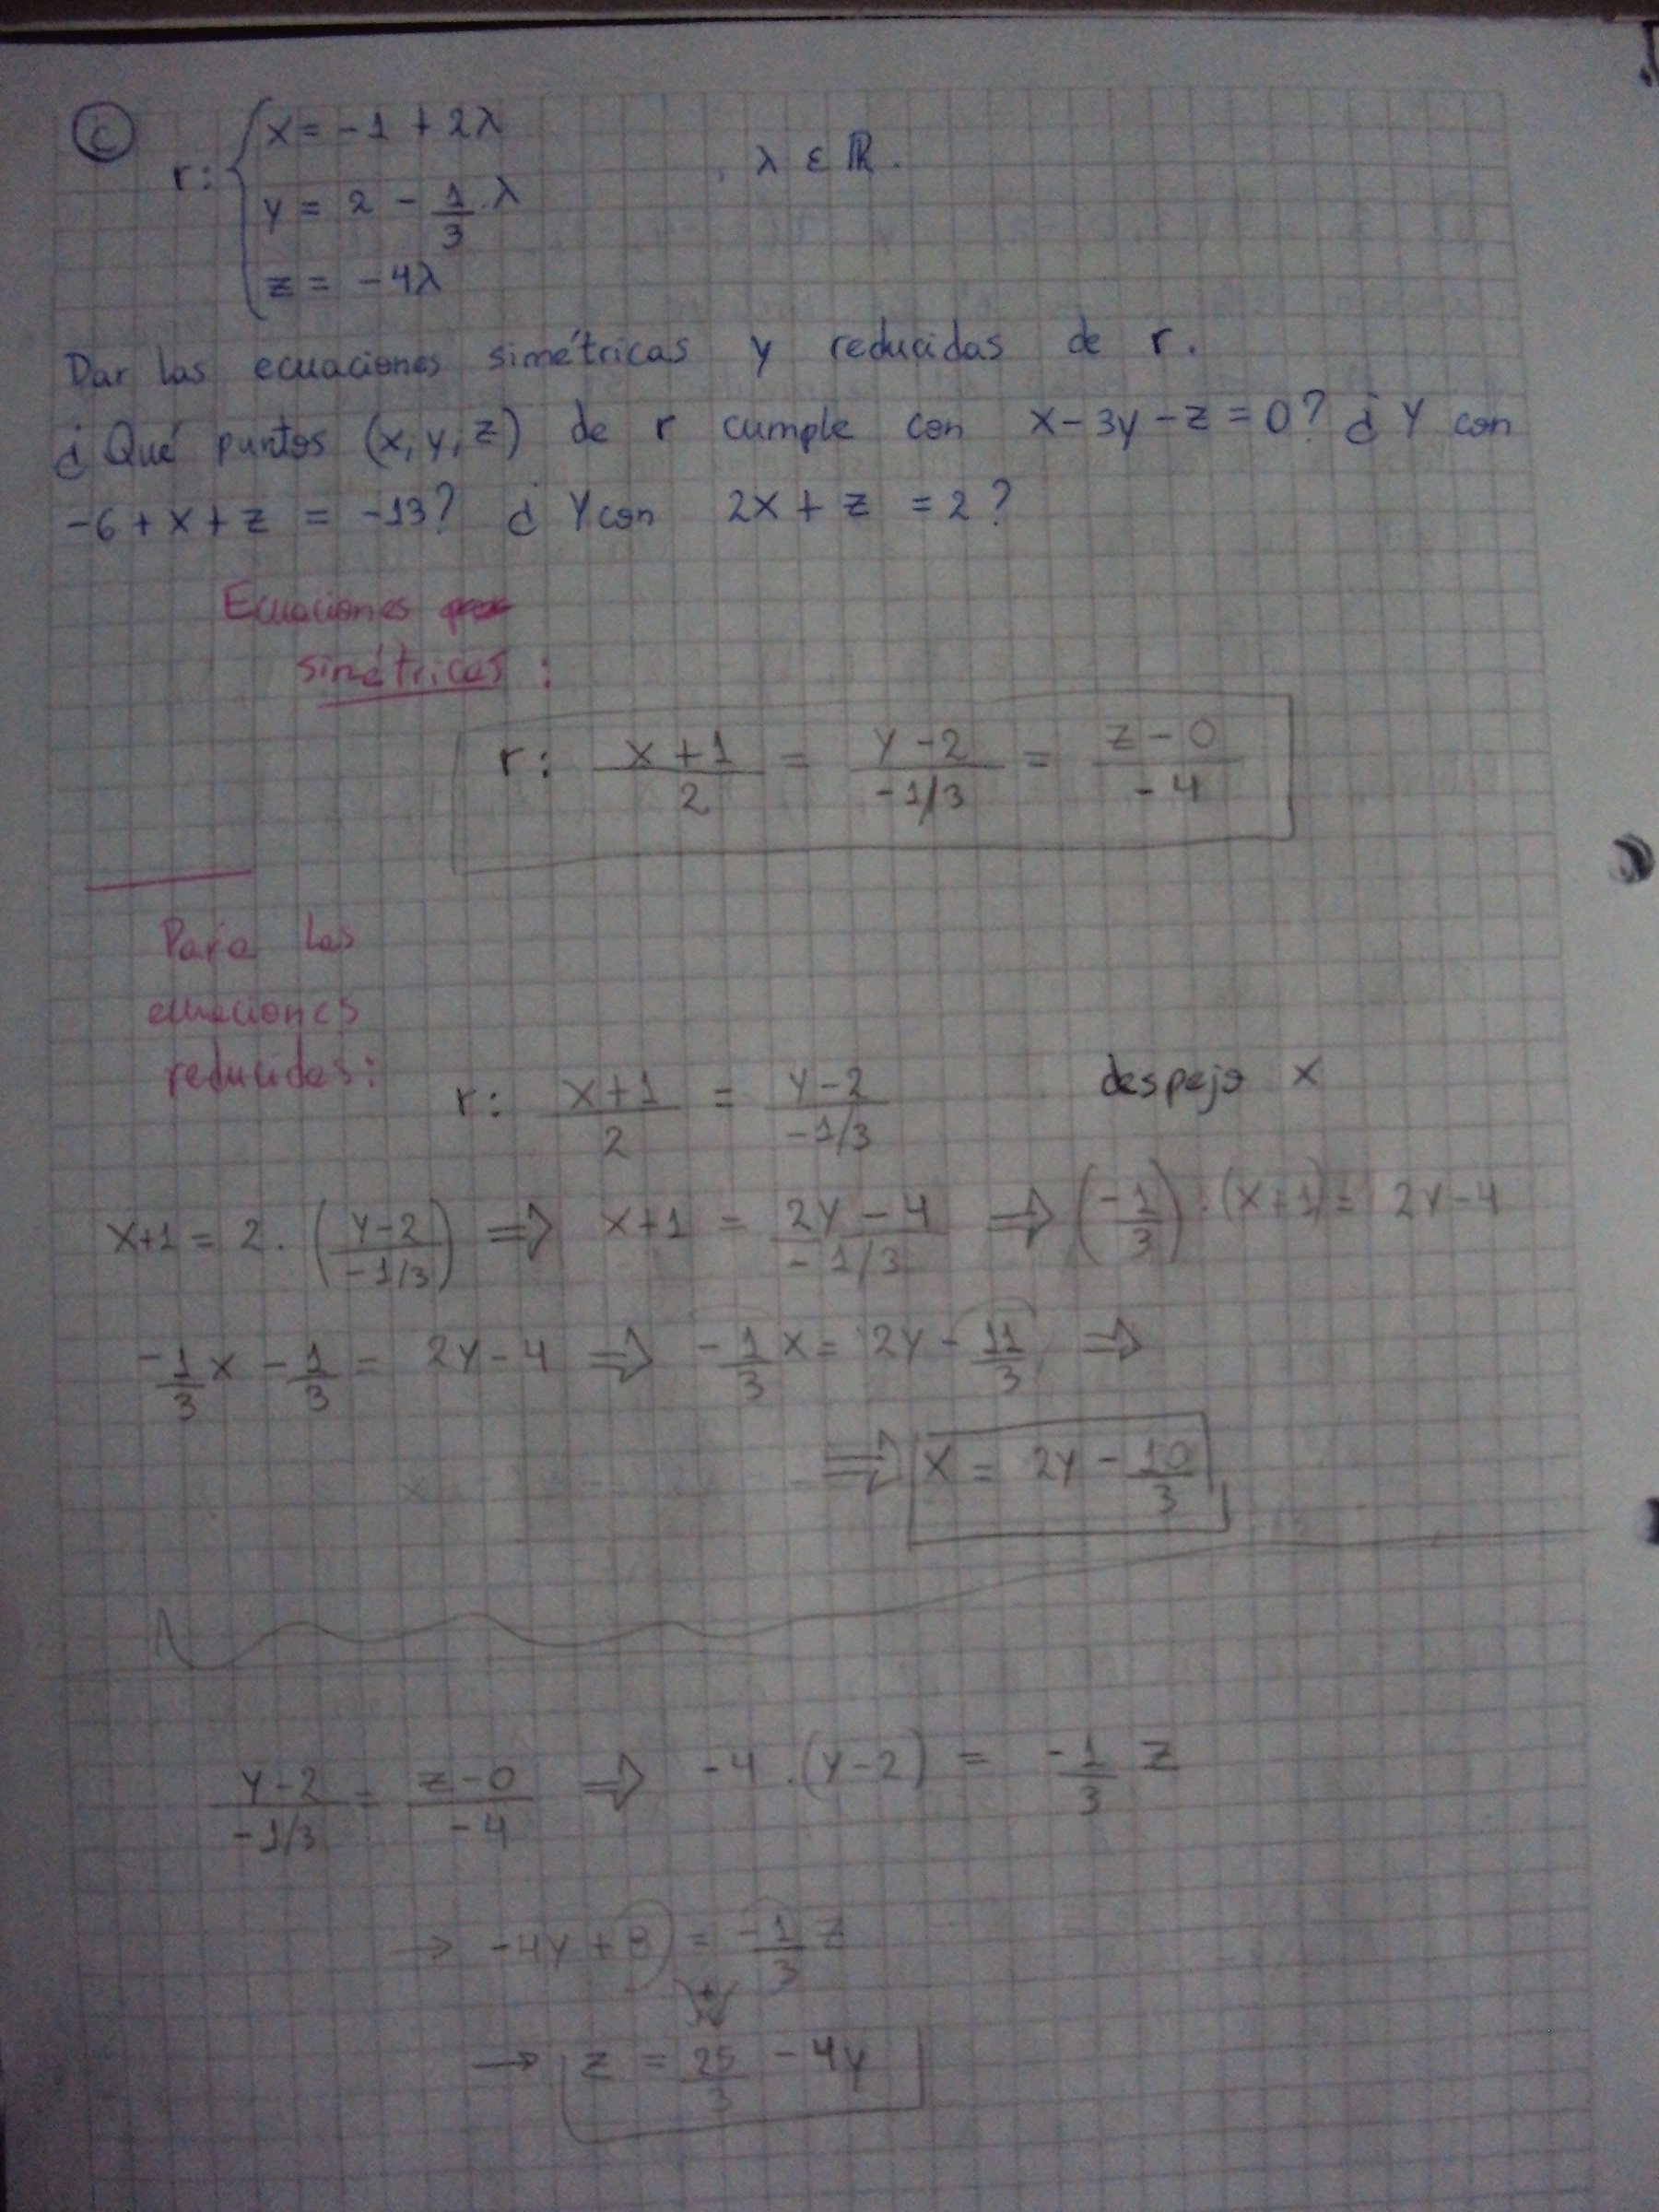 c
r: { x = -1 + 2λ
y = 2 - 1/3 · λ , λ ε ℝ.
z = -4λ
Dar las ecuaciones simétricas y reducidas de r.
¿Qué puntos (x, y, z) de r cumple con x - 3y - z = 0? ¿Y con
-6 + x + z = -13? ¿Y con 2x + z = 2?
Ecuaciones
simétricas:
r: (x + 1)/2 = (y - 2)/(-1/3) = (z - 0)/(-4)
Para las
ecuaciones
reducidas:
r: (x+1)/2 = (y-2)/(-1/3) despejo x
x+1 = 2 · ((y-2)/(-1/3)) ⇒ x+1 = (2y - 4)/(-1/3) ⇒ (-1/3) · (x+1) = 2y - 4
-1/3 x - 1/3 = 2y - 4 ⇒ -1/3 x = 2y - 11/3 ⇒
⇒ x = 2y - 10/3
(y-2)/(-1/3) = (z-0)/(-4) ⇒ -4 · (y-2) = -1/3 z
→ -4y + 8 = -1/3 z
+
→ z = 25/3 - 4y